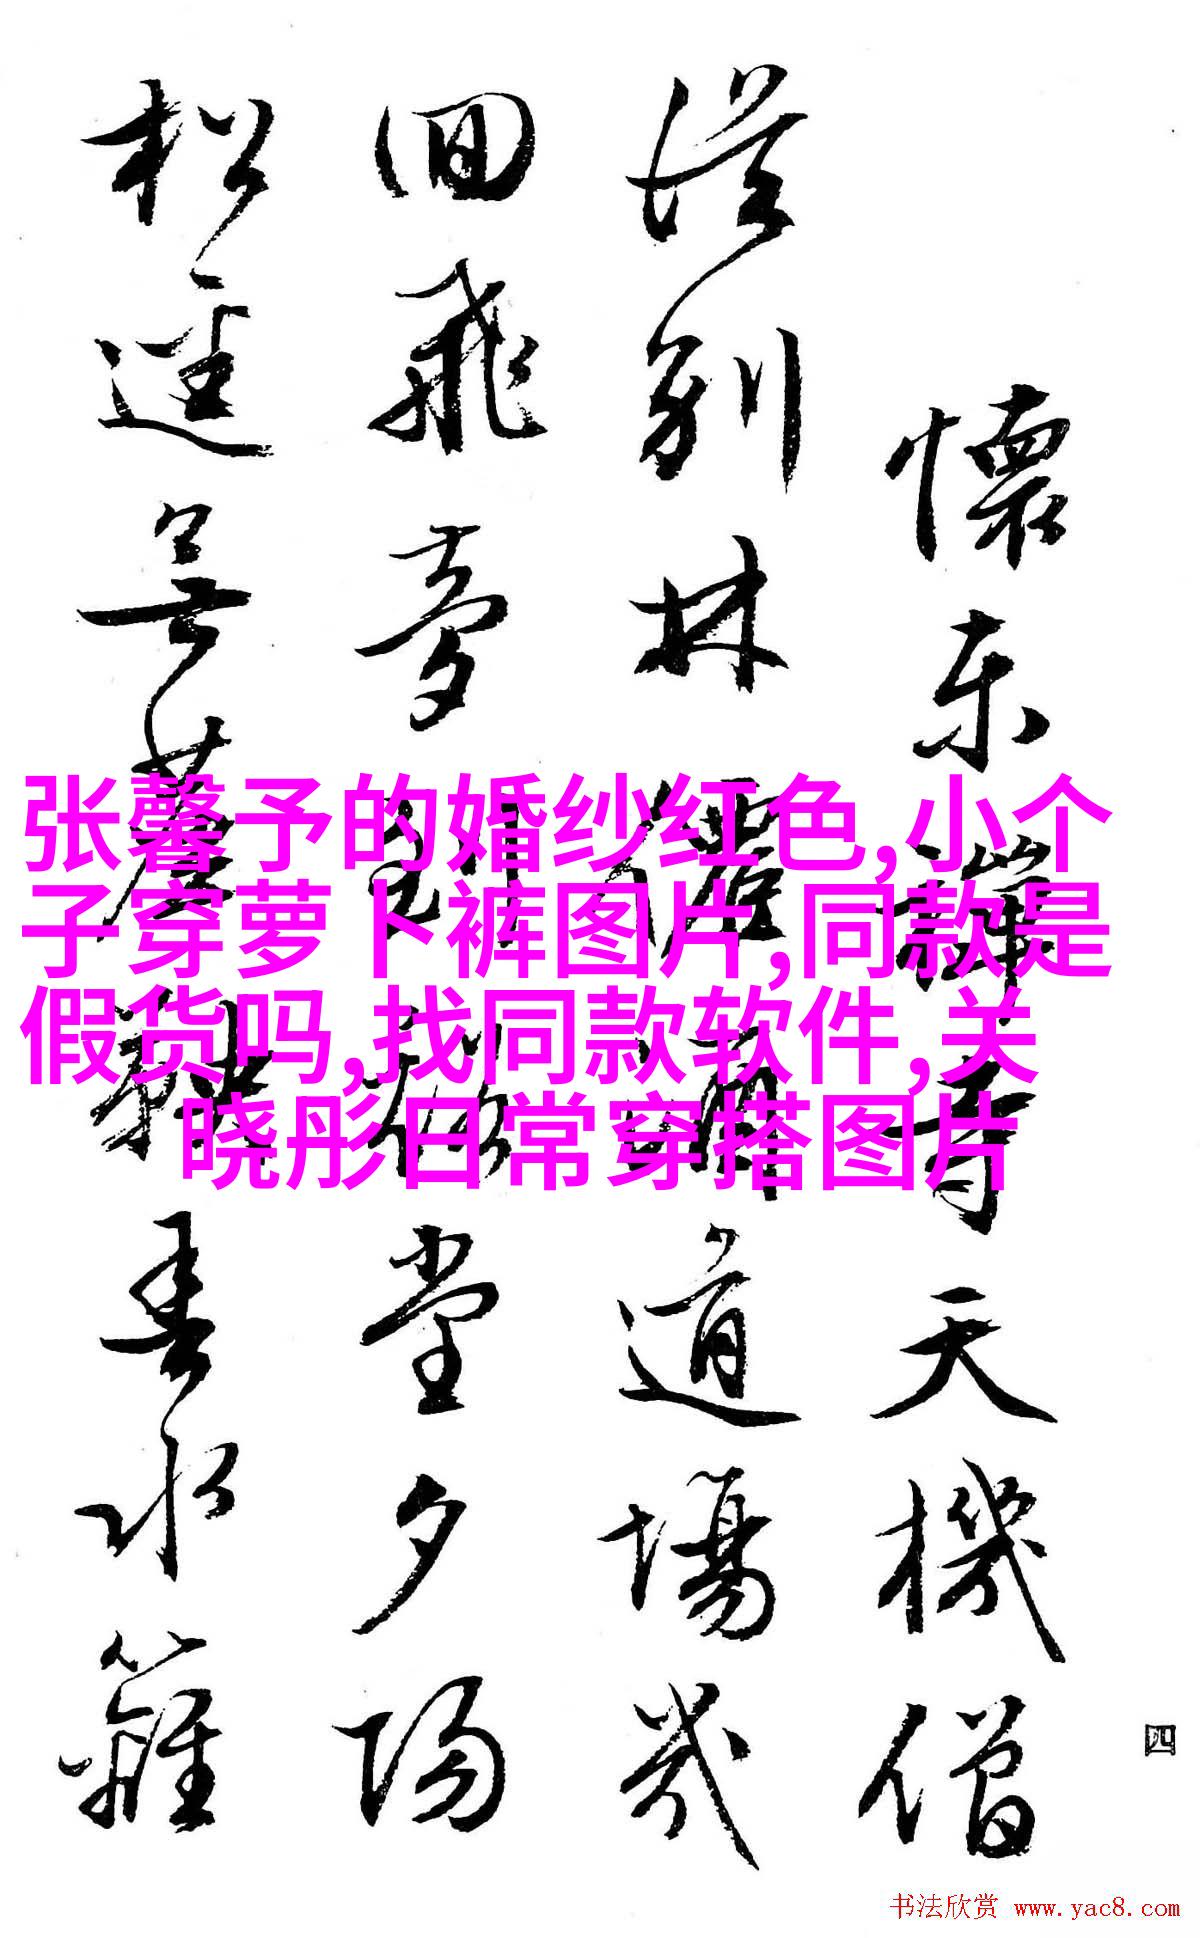 张馨予的婚纱红色,小个
子穿萝卜裤图片,同款是
假货吗,找同款软件,关
晓彤日常穿搭图片
懷東禪寺天機僧
從別林道場幾
回飛夢到堂夕陽
松逕無春水籬
四
书法欣赏 www.yac8.com